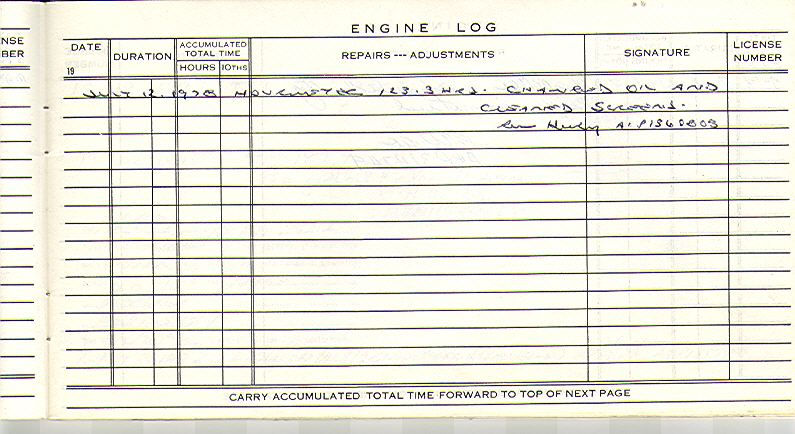 ENGINE LOG
NSE
BER
DATE
19
DURATION
ACCUMULATED
TOTAL TIME
HOURS 10THS
REPAIRS --- ADJUSTMENTS
SIGNATURE
LICENSE
NUMBER
JULY 12, 1978 HOURMETER 123.3 HRS. CHANGED OIL AND
CLEANED SCREENS.
CARRY ACCUMULATED TOTAL TIME FORWARD TO TOP OF NEXT PAGE